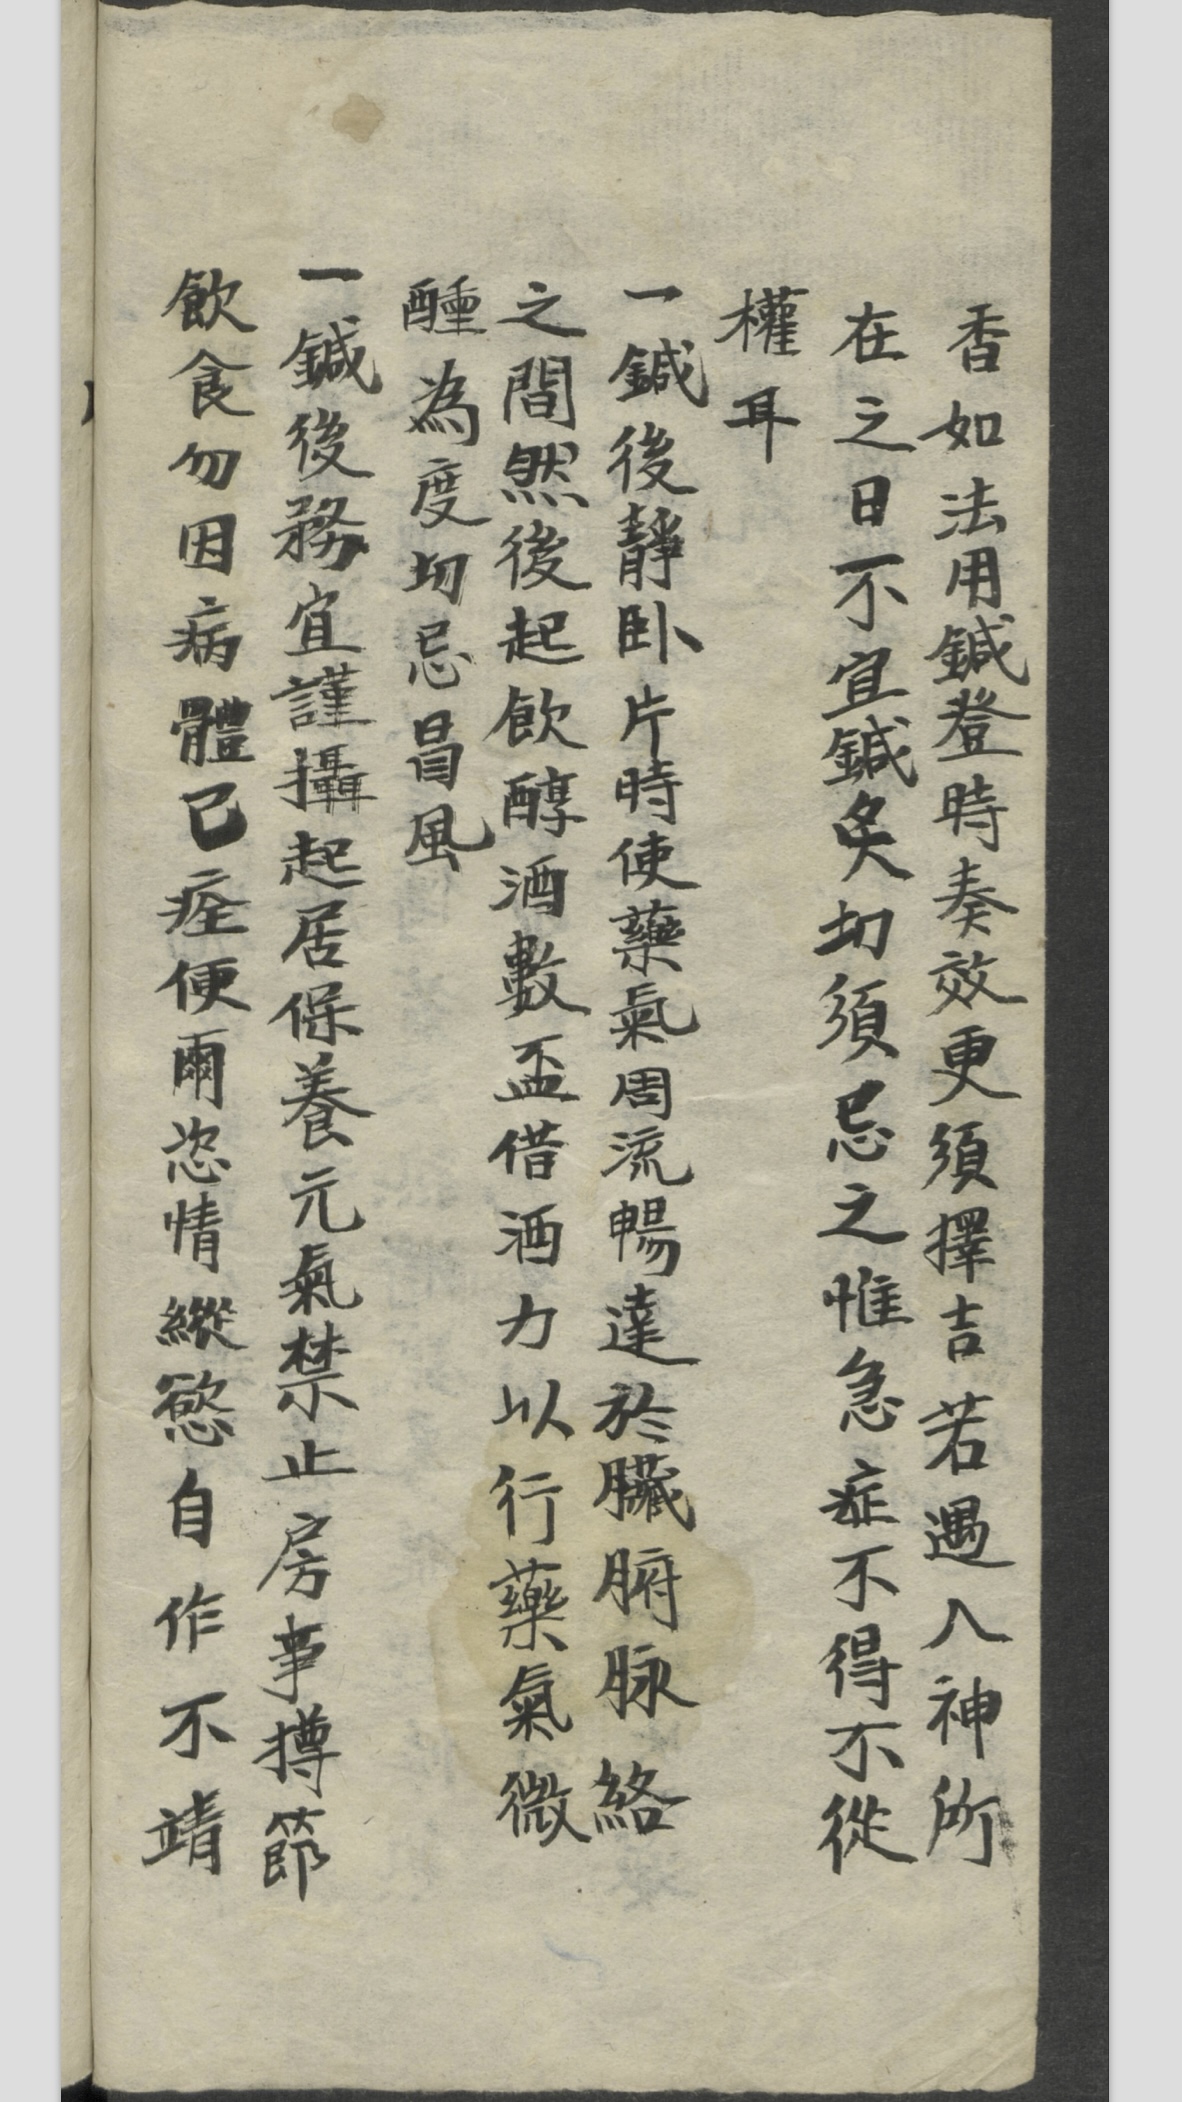 香如法用鍼登時奏效更須擇吉若遇人神所
在之日不宜鍼灸切須忌之惟急症不得不從
權耳
一鍼後靜卧片時使藥氣周流暢達於臟腑脉絡
之間然後起飲醇酒數盃借酒力以行藥氣微
醺為度切忌冒風
一鍼後務宜謹攝起居保養元氣禁止房事撙節
飲食勿因病體已痊便爾恣情縱慾自作不靖